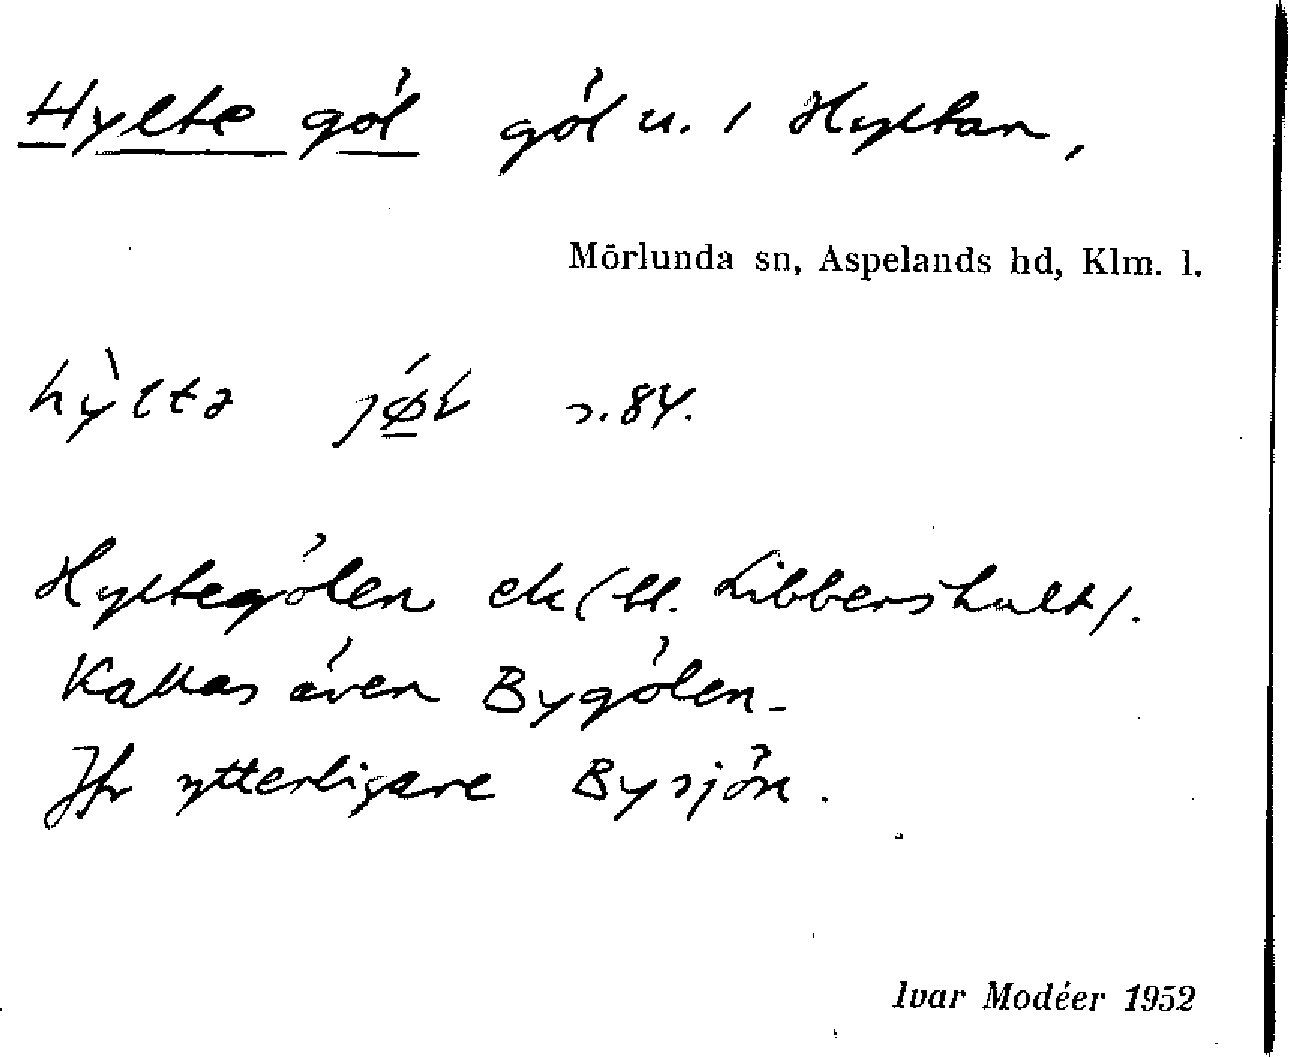 Hylte göl göl u. / Hyltan,
Mörlunda sn, Aspelands hd, Klm. l.
hỳltə jǿ̲ł s. 84.
Hyltegölen ek (bl. Libbershult).
Kallas även Bygölen.
Jfr ytterligare Bysjön.
Ivar Modéer 1952